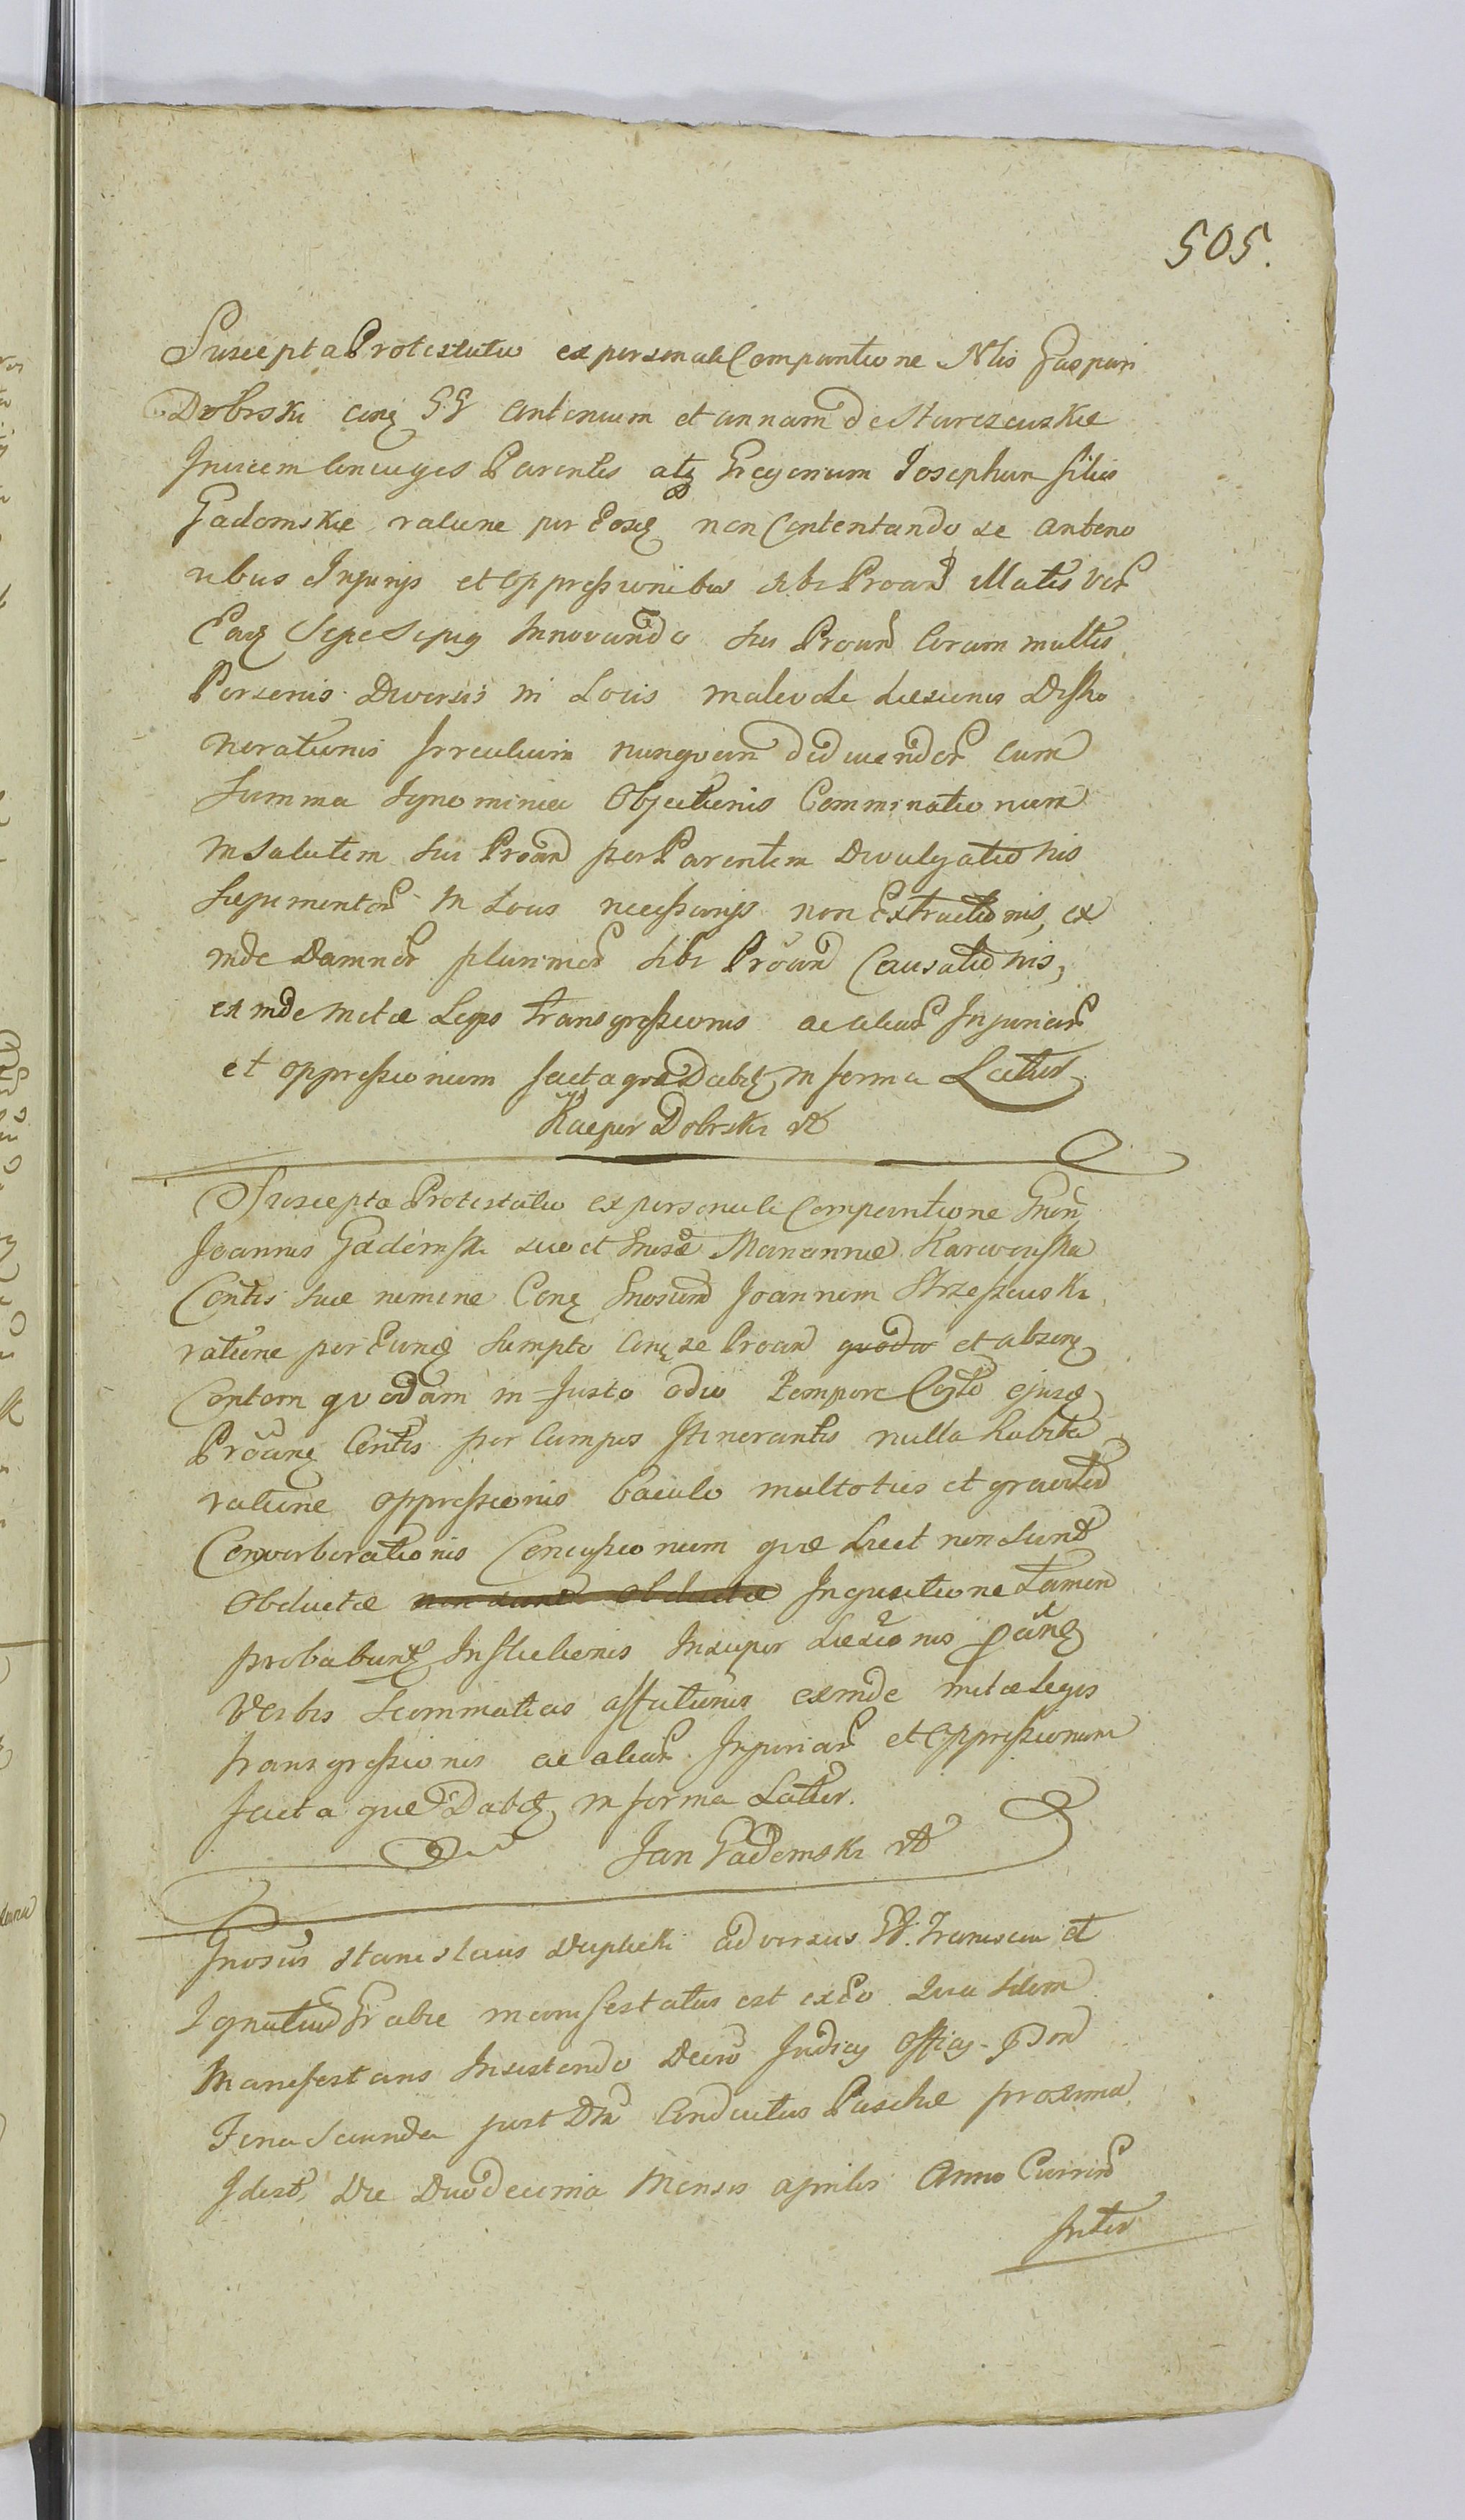 505.
Suscepta Protestatio ex personali Comparitione Nlis Gaspari
Dobrski conq GG Antonium et annam de Starczewskie
Invicem Coniuges Parentes atq Gregorium Josephum filios
Gadomskie ratione per Eosq non Contentando se anterio
ribus Injurijs et Oppressionibus sibi Proan illatis ver
Eaq Sepe Sepiq Innovando sui Proan Coram multis
Personis Diversis in Locis malevole Laesionis Disho
norationis nunquam deducendor cum
Summa Ignominia Objectionis Comminationum
In Salutem sui Proan per Parentem Divulgationis
Sepimentor in Locis necessarijs non Extructionis, ex
inde Damnor plurimor sibi Proan Causationis,
ex inde metae Legis transgressionis ac aliar Injuriar
et oppressionum facta que Dabit in forma Latior
Kacper Dobrski
Suscepta Protestatio ex personali Comparitione Gnen
Joannis Gadomski suo et Gnosae Mariannae Karwowska
Contis suae nomine Conq Gnosum Joannem Strzeszewski
ratione per Eunq Sumpto conq se Proan quodo et absenq
Contem quodam in Justo odio Tempore ejusq
Proanq Contis per Campos Itinerantis nulla habita
ratione oppressionis baculo multoties et graviter
Converberationis Concussionum quae Licet non sunt
Obductae non sunt obductae Inquisitione tamen
probabunt Insecutionis Insuper Laesionis
Verbis Scommaticis affationis exinde metae Legis
transgressionis ac aliar Injuriar et Oppressionum
facta que Dabit in forma Latior.
Jan Gadomski
Gnosus Stanislaus adversus GG. Franciscum et
Ignatium Grabie manifestatus est ex eo Quia idem
Manifestans Insistendo Decro Judicij Officij
Feria Secunda post Dm Conductus Paschae proxima
Idest, Die Duodecima Mensis aprilis Anno Currenr
Inter